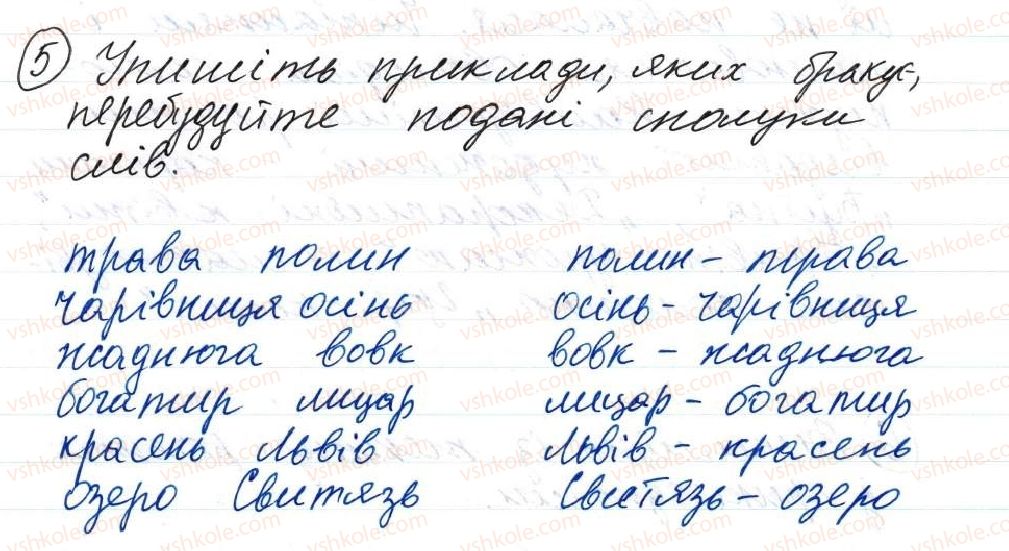 5 Упишіть приклади, яких бракує,
перебудуйте подані сполуки
слів.
трава полин полин - трава
чарівниця осінь осінь - чарівниця
жаднюга вовк вовк - жаднюга
богатир лицар лицар - богатир
красень Львів Львів - красень
озеро Свитязь Свитязь - озеро